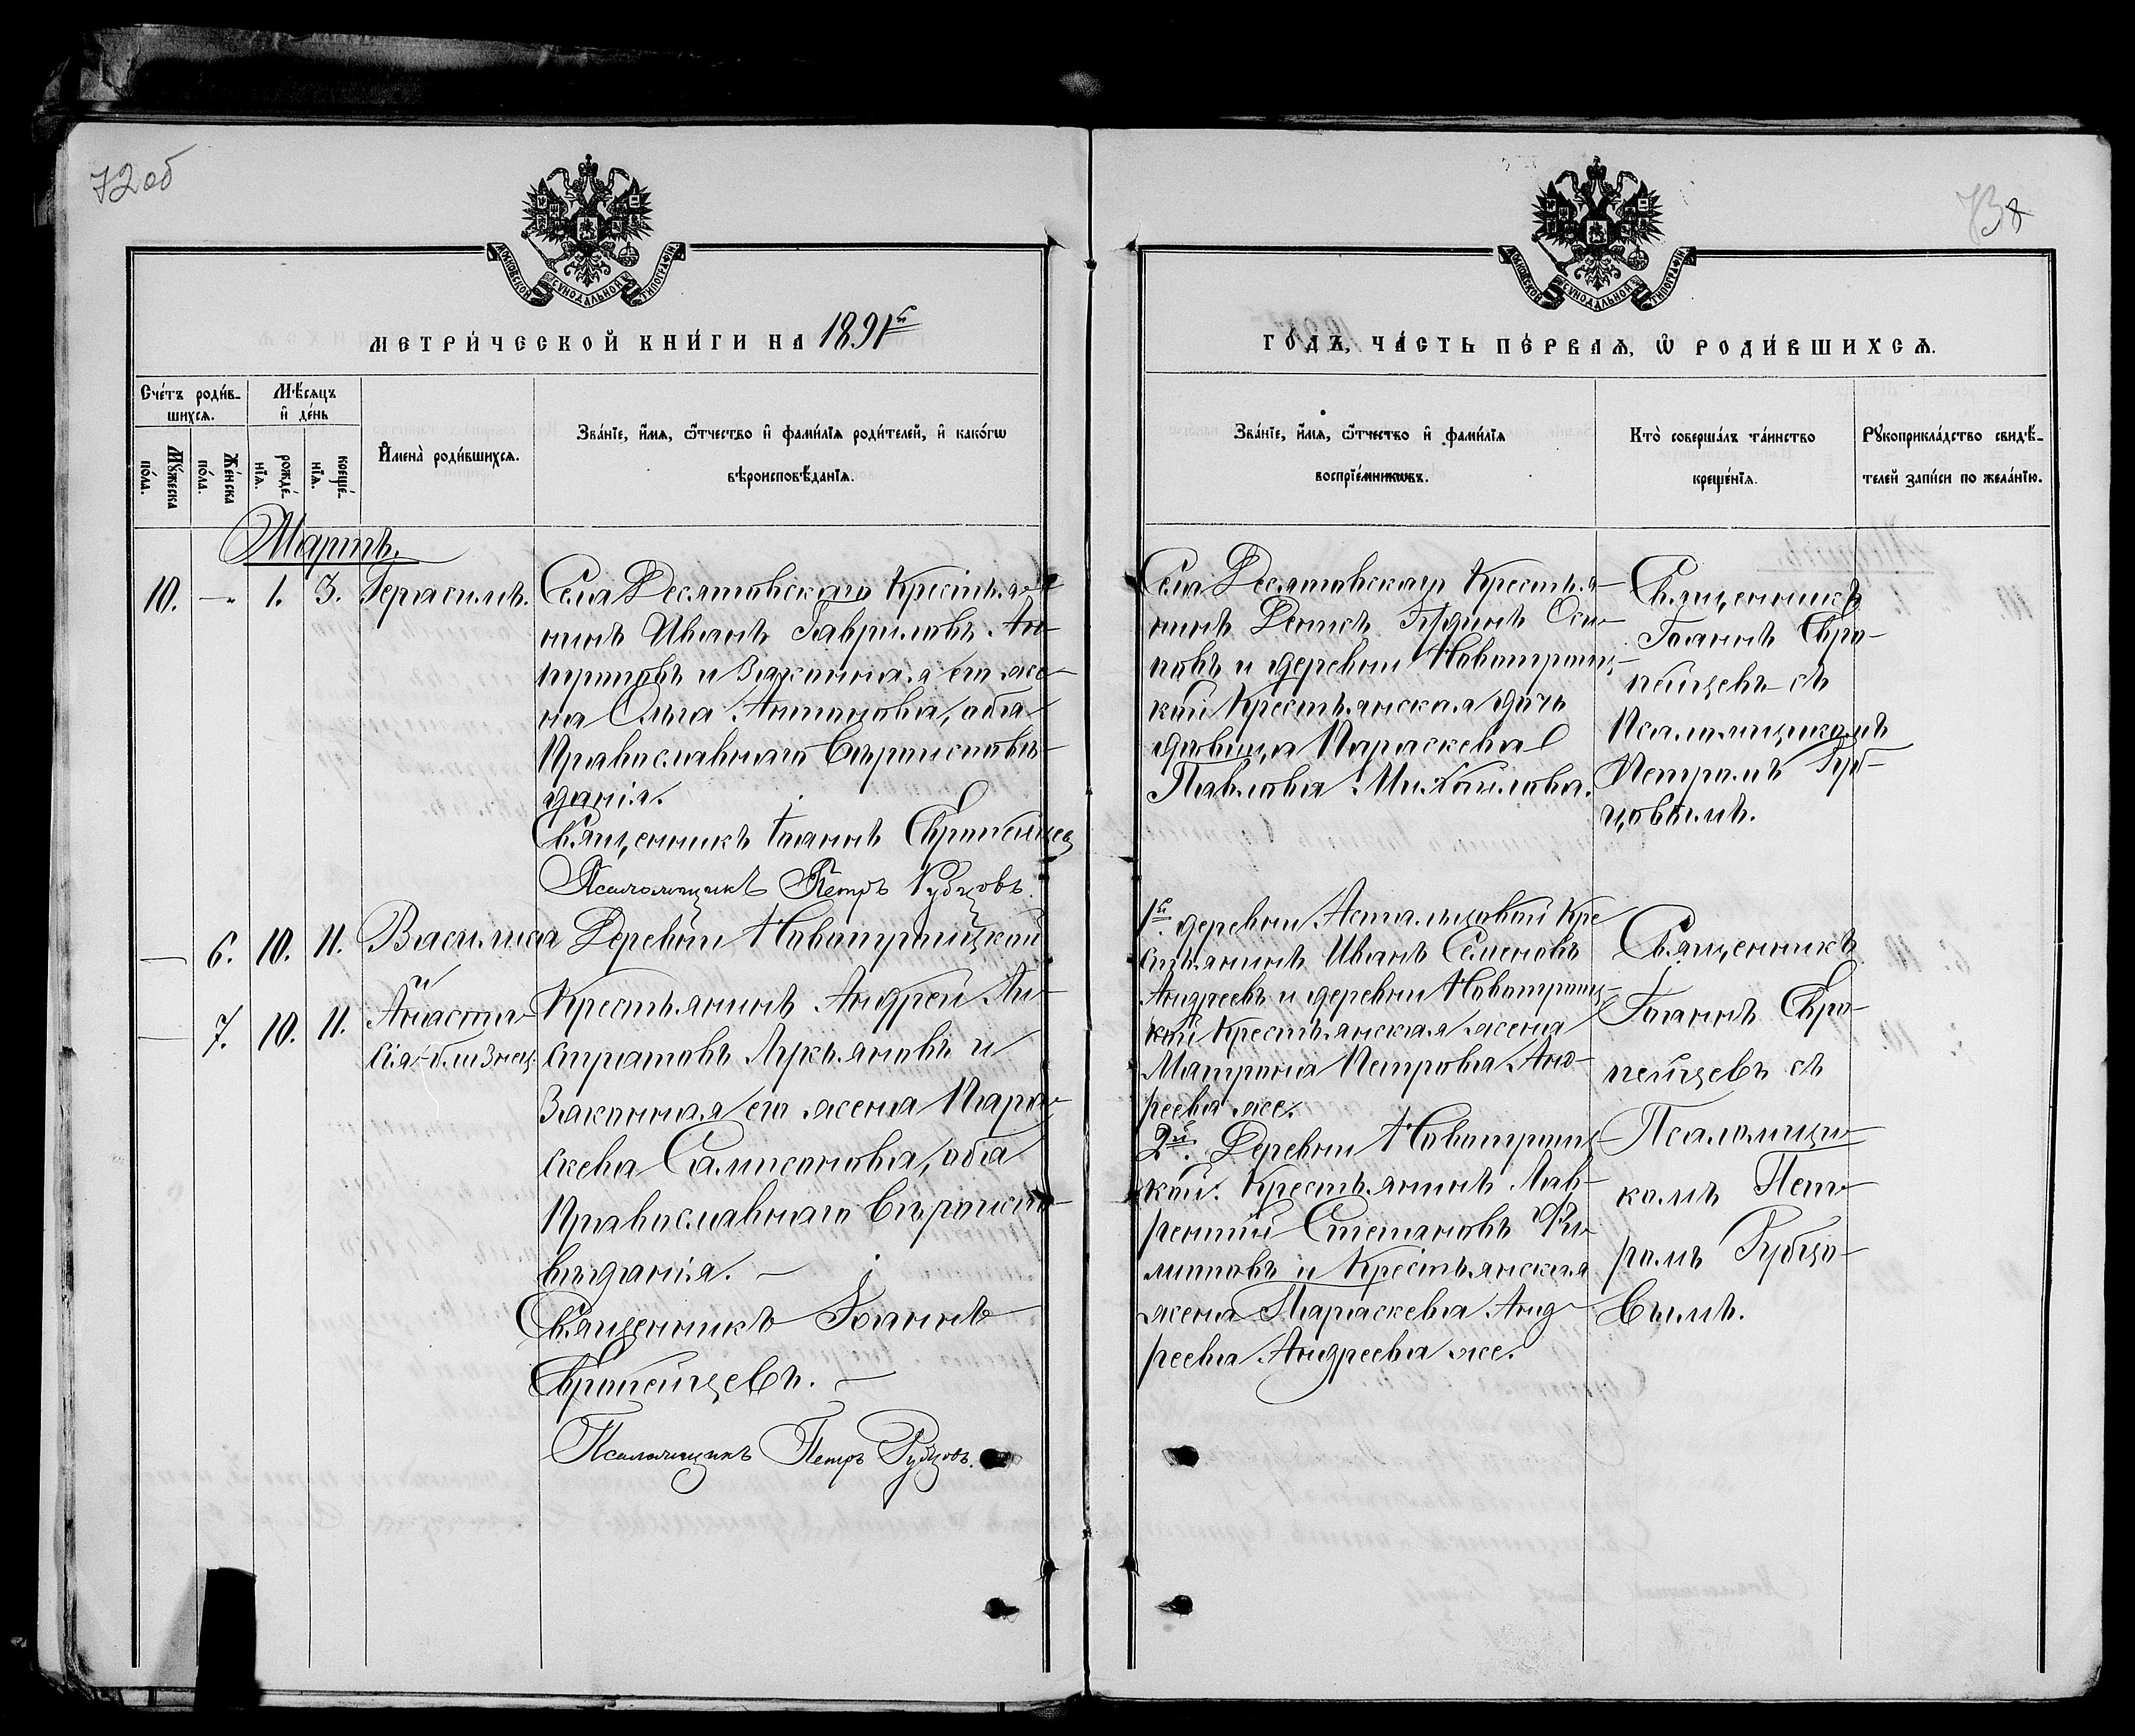 72 об
МОСКОВСКОЙ СѴНОДАЛЬНОЙ ТИПОГРАФІИ
МЕТРИ́ЧЕСКОЙ КНИ́ГИ НА 1891й
Сче́тъ роди́в-
шихсѧ.
Мѣ́сѧцъ
и҆ де́нь
Мꙋ́жеска
по́ла.
Же́нска
по́ла.
рожде́-
нїѧ.
креще́-
нїѧ.
И҆мена̀ роди́вшихсѧ.
Зва́нїе, и҆́мѧ, ѻ҆́тчество и҆ фами́лїѧ роди́телей, и҆ како́гѡ
вѣроисповѣ́данїѧ.
Мартъ.
10.
—
1.
3.
Герасимъ.
Села Десятовскаго Крестья-
нинъ Иванъ Гавриловъ
и Законная его же-
на Ольга Антонова, оба
Православнаго Вѣроисповѣ-
данія.
Священникъ Іоаннъ
Псаломщикъ Петръ Рубцовъ.
—
6.
10.
11.
Василиса
и
—
7.
10.
11.
Анаста-
сія-близнец.
Деревни Новотроицкой
Крестьянинъ Андрей Ли-
стратовъ Лукьяновъ и
Законная его жена Пара-
скева Самисонова, оба
Православнаго Вѣроиспо-
вѣданія. —
Священникъ Іоаннъ
Псаломщикъ Петръ Рубцовъ.
73
МОСКОВСКОЙ СѴНОДАЛЬНОЙ ТИПОГРАФІИ
ГО́ДЪ, ЧА́СТЬ ПЕ́РВАѦ, Ѡ҆ РОДИ́ВШИХСѦ.
Зва́нїе, и҆́мѧ, ѻ҆́тчество и҆ фами́лїѧ
воспрїе́мникѡвъ.
Кто̀ соверша́лъ та́инство
креще́нїѧ.
Рꙋкоприкла́дство свидѣ́-
телей за́писи по жела́нїю.
Села Десятовскаго Крестья-
нинъ Денисъ Оси-
повъ и деревни Новотроиц-
кой Крестьянская дочь
дѣвица Параскева
Павлова Михайлова.
Священникъ
Іоаннъ
съ
Псаломщикомъ
Петромъ Руб-
цовымъ.
1й деревни Асталцовой Кре-
стьянинъ Иванъ Семеновъ
Андреевъ и деревни Новотроиц-
кой Крестьянская жена
Матрона Петрова Анд-
реева же.
2й. Деревни Новотроиц-
кой. Крестьянинъ Лав-
рентій Степановъ Фи-
липповъ и Крестьянская
жена Параскева Анд-
реева Андреева же.
Священникъ
Іоаннъ
съ
Псаломщи-
комъ Пет-
ромъ Рубцо-
вымъ.